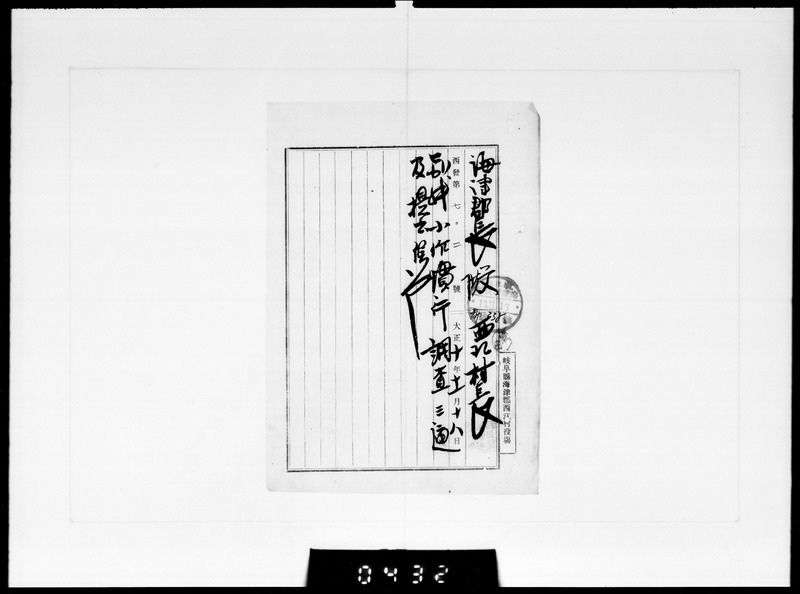 岐阜縣海津郡西江村役場
海津郡長殿 西江村長
西發第七〇二號 大正十年十一月十八日
別紙小作慣行調査三通
及提出候也
0432